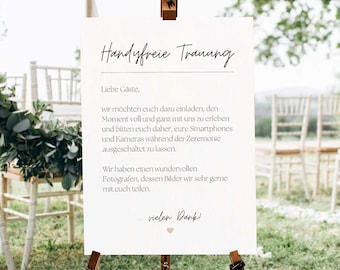 Handyfreie Trauung
Liebe Gäste,
wir möchten euch dazu einladen, den
Moment voll und ganz mit uns zu erleben
und bitten euch daher, eure Smartphones
und Kameras während der Zeremonie
ausgeschaltet zu lassen.
Wir haben einen wundervollen
Fotografen, dessen Bilder wir sehr gerne
mit euch teilen.
... vielen Dank!